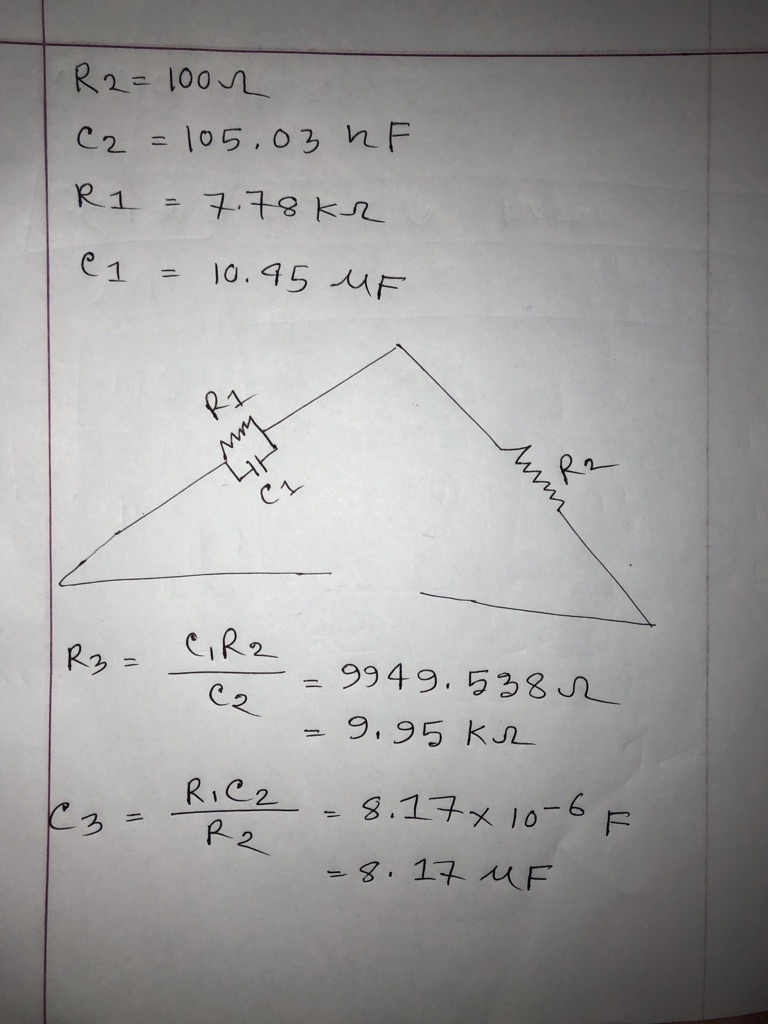 R2 = 100Ω
C2 = 105.03 nF
R1 = 7.78 KΩ
C1 = 10.45 μF
R1
C1
R2
R3 = C1R2 / C2 = 9949.538Ω
= 9.95 KΩ
C3 = R1C2 / R2 = 8.17 x 10^-6 F
= 8.17 μF